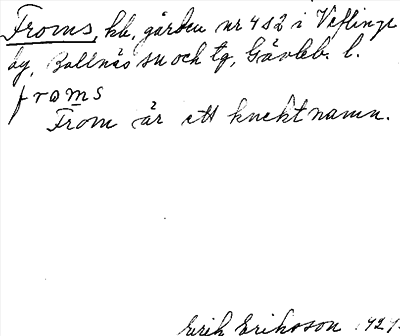 Froms, hb, gården nr 4 s 2 i Veflinge
by, Bollnäs sn och tg, Gävleb. l.
froms
From är ett knektnamn.
Erik Eriksson 1927.